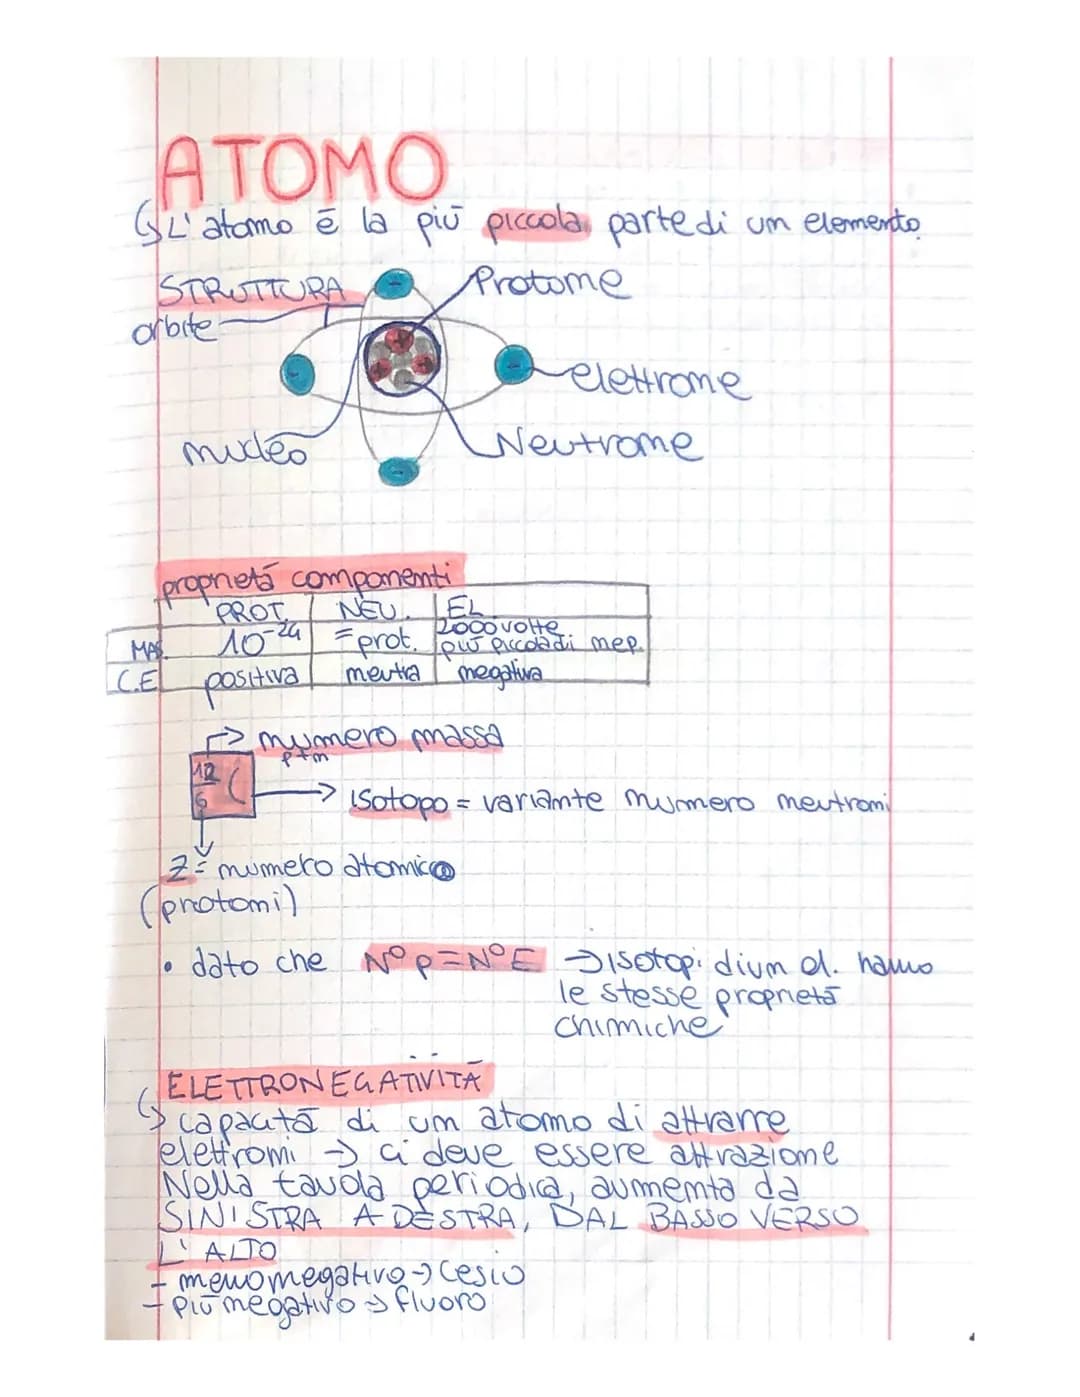 ATOMO
L'atomo ē la piū piccola parte di un elemento.
STRUTTURA
Protone
orbite
elettrone
nucleo
Neutrone
proprietá componenti
PROT. NEU. EL
MAS. 10⁻²⁴ = prot. 2000 volte più piccola di n e p.
C.E positiva neutra negativa
numero massa
p+n
12
6 C
isotopo = variante numero neutroni
Z = numero atomico
(protoni)
• dato che N° p = N° E → isotopi di un el. hanno
le stesse proprietā
chimiche
ELETTRONEGATIVITĀ
↳ capacitā di un atomo di attrarre
elettroni → ci deve essere attrazione
Nella tavola periodica, aumenta da
SINISTRA A DESTRA, DAL BASSO VERSO
L'ALTO
- meno negativo → Cesio
- piū negativo → fluoro